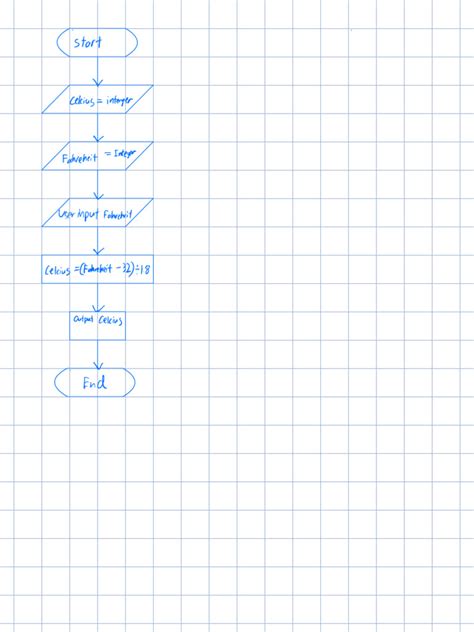 Start
Celcius = integer
Fahreheit = Integer
User input Fahreheit
Celcius =(Fahreheit -32)÷1.8
output Celcius
End